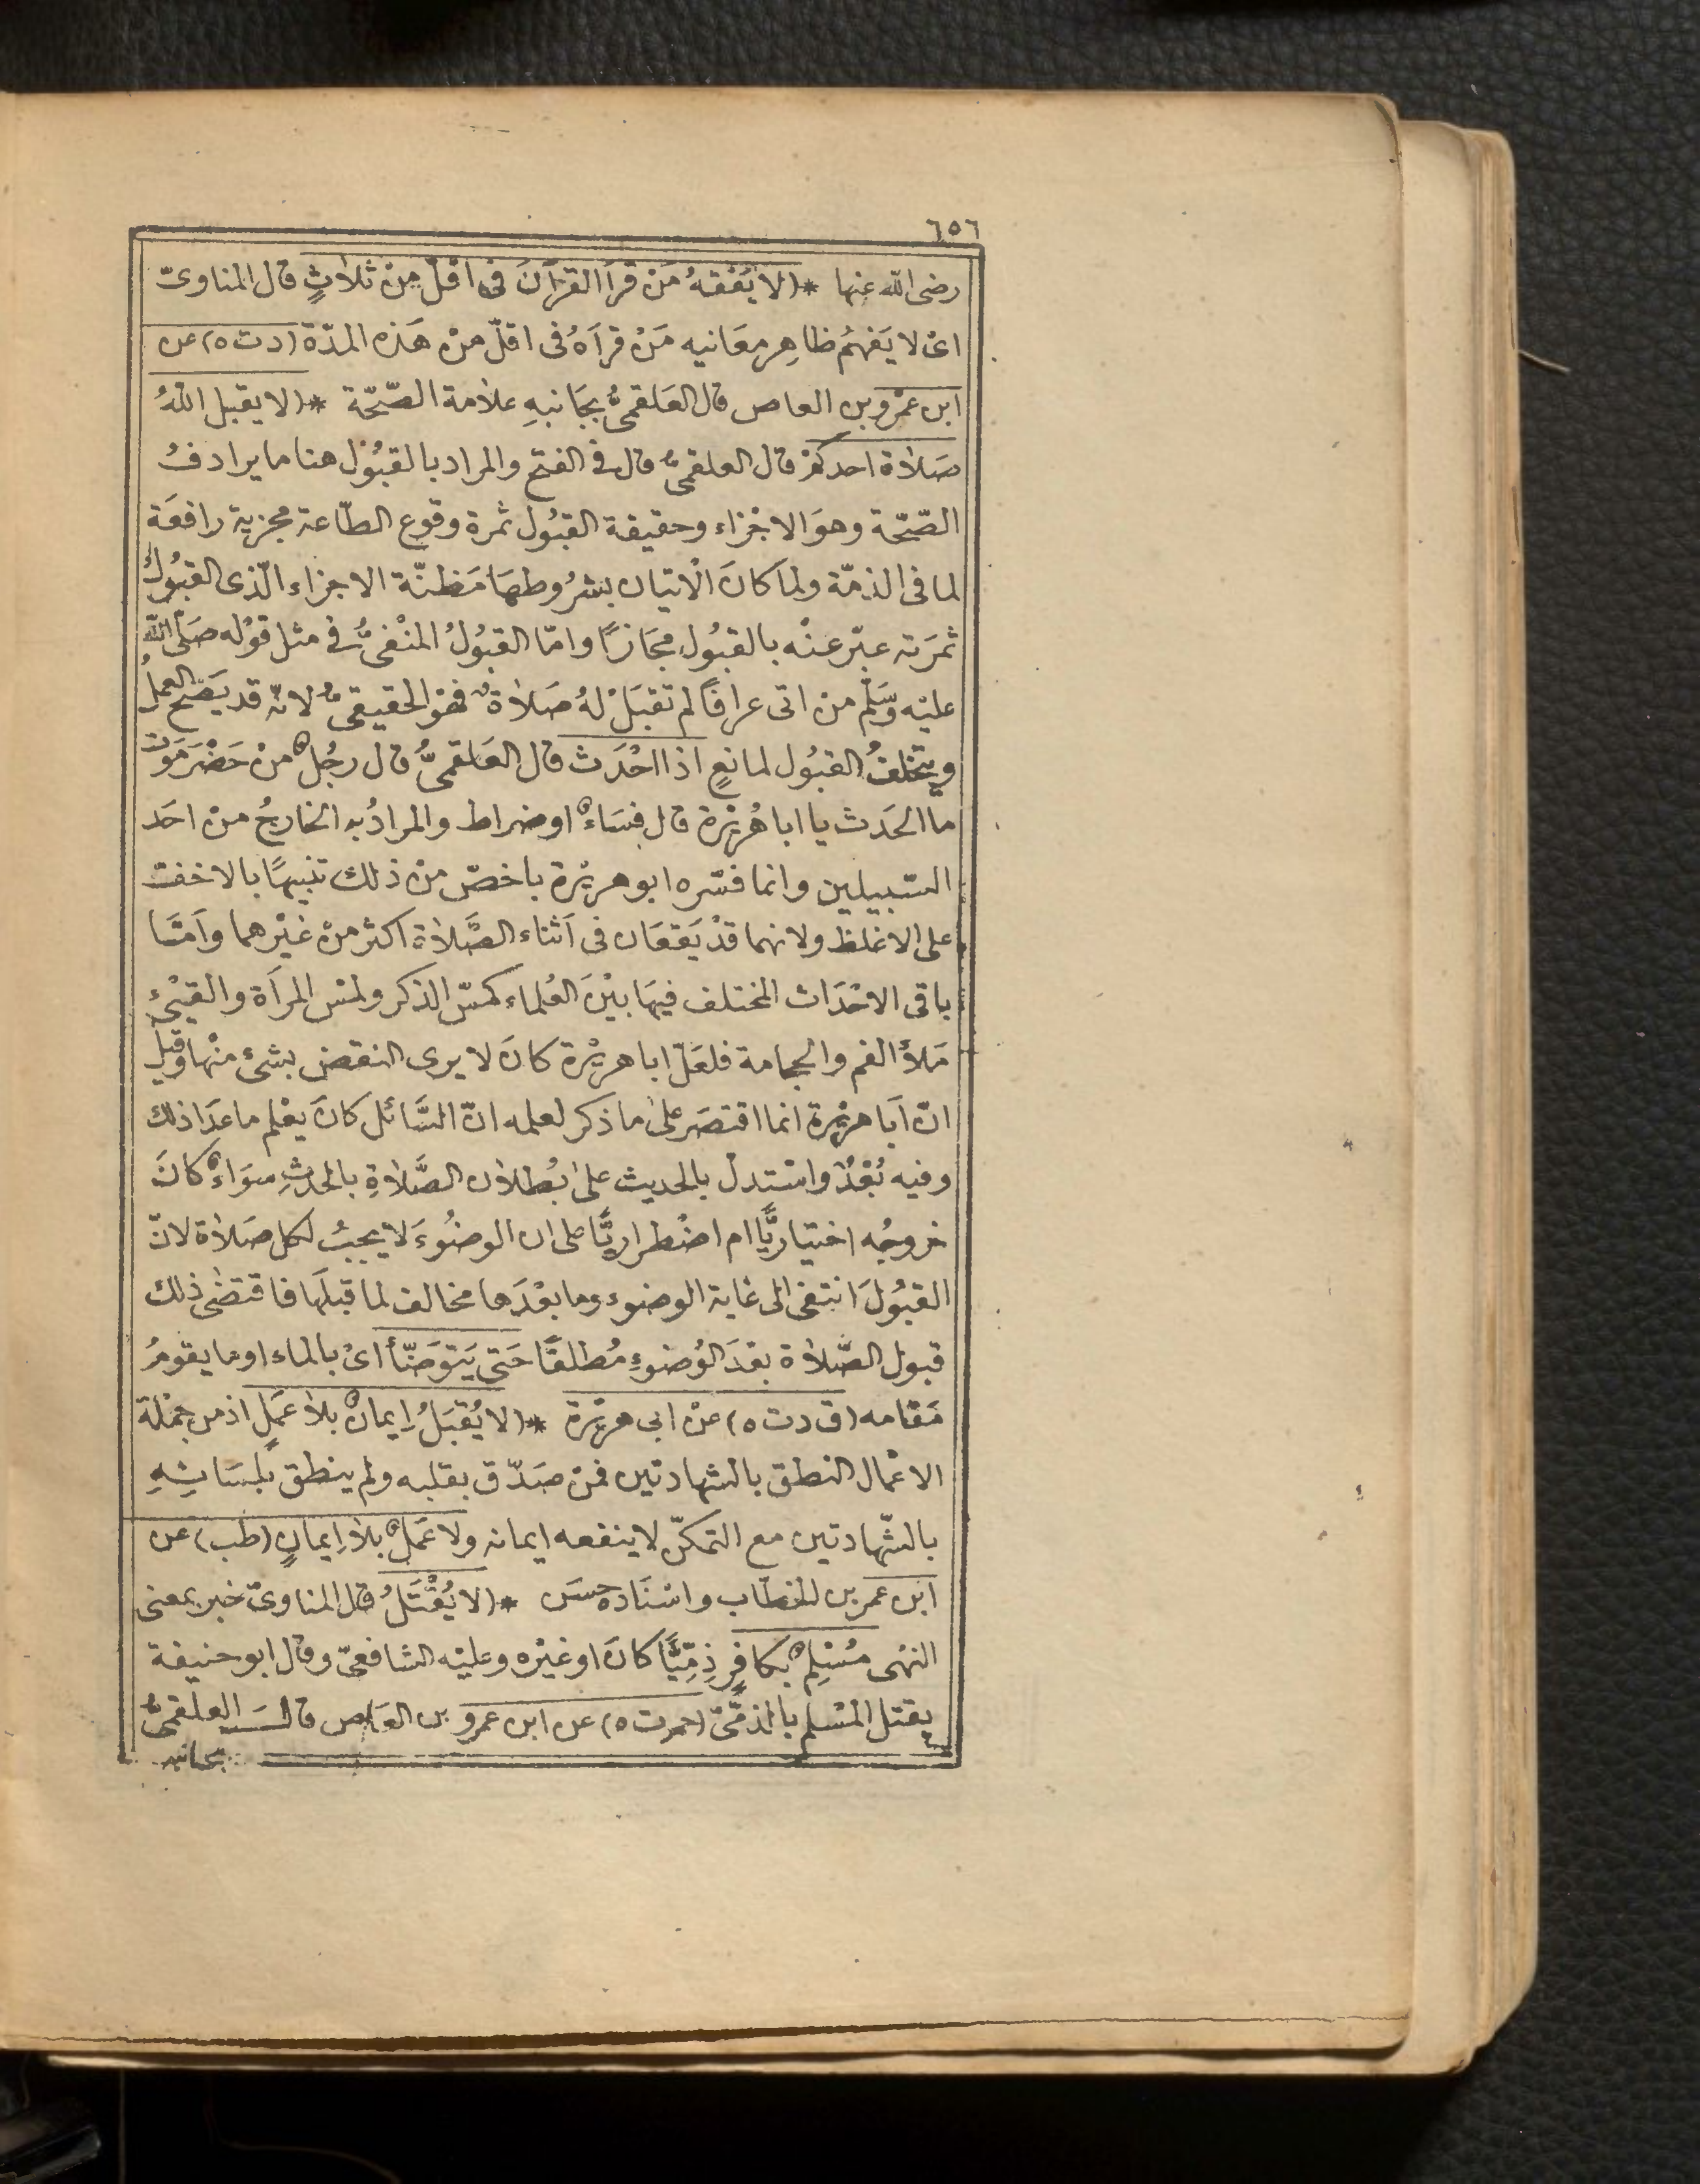 ٦٥٦
رضى الله عنها * (لا يَفْقَهُ مَنْ قرأ القرآنَ فى اقلّ مِنْ ثلاثٍ قال المناوىّ
اىْ لا يَفهَمُ ظاهِر معَانيه مَنْ قرأهُ فى اقلّ منْ هَذه المدّة (د ت ه) عن
ابن عمْرو بن العاص قال العَلقمىُّ بجَانبهِ علامة الصّحّة * (لا يقبل اللهُ
صَلاة احدكمْ قال العلقمىُّ قال فى الفتح والمراد بالقبُول هنا ما يرادفُ
الصّحّة وهوَ الاجْزاء وحقيقة القبُول ثمرة وقوع الطّاعة مجزية رافعَة
لما فى الذمّة ولما كانَ الْاتيان بشرُوطهَا مَظنّة الاجزاء الّذى القبُولُ
ثمرَته عبّر عنْه بالقبُول مجَازًا وامّا القبُولُ المنْفىُّ فى مثل قوْله صَلى الله
عليْه وسَلّم من اتى عرافًا لم تقبَلْ لهُ صَلاةٌ فهوَ الحقيقىُّ لانّه قد يَصحّ العملُ
ويتخلفُ القبُول لمانعٍ اذا احْدَث قال العَلقمىُّ قال رجُلٌ منْ حَضْرَمَوت
ما الحَدث يا ابا هُريْرة قال فسَاءٌ او ضراط والمرادُ به الخارجُ منْ احَد
السّبيلين وانما فسّره ابو هريْرة باخصّ منْ ذلك تنبيهًا بالاخفّ
على الاغلظ ولانهما قدْ يَقعَان فى اَثناء الصَّلاة اكثر منْ غيْرهما واَمّا
باقى الاحْدَاث المختلف فيهَا بيْنَ العُلماء كمسّ الذكر ولمْس المرأة والقيْئ
مَلأَ الفم والحجامة فلعَلّ ابا هريْرة كانَ لا يرى النقض بشئ منْها وقيلَ
انّ اَبا هريْرة انما اقتصَر علىٰ ما ذكر لعلمه انّ السَّائل كانَ يعْلم ما عدَا ذلك
وفيه بُعْدٌ واسْتدل بالحديث علىٰ بُطلان الصَّلاةِ بالحدثِ سوَاءٌ كانَ
خروجُه اختياريًّا ام اضْطراريًّا على ان الوضُوءَ لا يجبُ لكل صَلاة لانّ
القبُولَ انتفى الى غاية الوضوء وما بعْدَها مخالف لما قبلَها فاقتضىٰ ذلك
قبول الصَّلاة بعْدَ الوُضوءِ مُطلقًا حَتى يَتوَضّأ اىْ بالماء او ما يقومُ
مَقامه (ق د ت ه) عنْ ابى هريْرة * (لا يُقبَلُ اِيمانٌ بلا عَمَلٍ اذ من جمْلة
الاعْمال النطق بالشهادتين فمنْ صَدّق بقلبه ولم ينطق بلسَانِهِ
بالشّهادتين مع التمكّن لا ينفعه ايمانه ولا عَمَلٌ بلا اِيمانٍ (طب) عن
ابن عمر بن الخطّاب واسْنَاده حسَن * (لا يُقْتَلُ قال المناوىّ خبر بمعنى
النهْى مُسْلِمٌ بكافِرٍ ذِمِّيًّا كانَ او غيْره وعليْه الشافعىّ وقال ابو حنيفة
يقتل المسْلم بالذمّىّ (حم ت ه) عن ابن عمرو بن العَاص قال العلقمىُّ
بجانبه